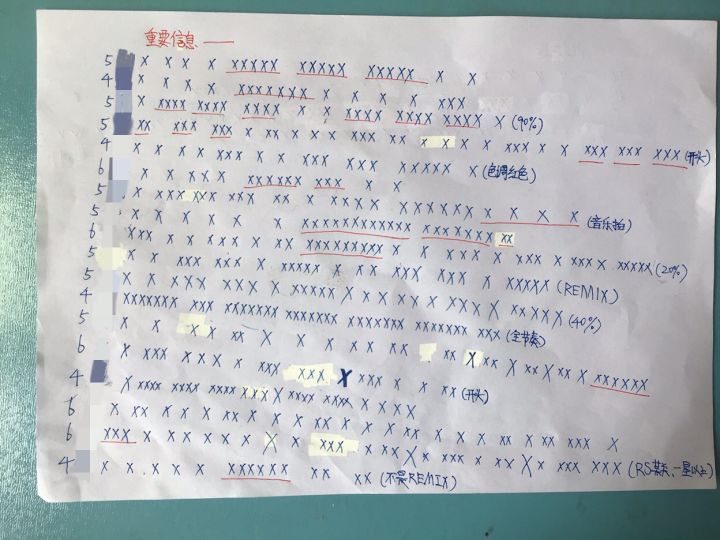 重要信息——
5 X X X X XXXXX XXXXX XXXXX X X
4 X X X X XXXXXXX X X X X XXX
5 X XXXX XXXX XXXX X X XXXX XXXX XXXX X (90%)
5 XX XXX XXX X XX X X X X XXX XX X X X X XXX X X X XXX XXX XXX (开头)
4 X X X X XXX X X XXX XXX XXX XXXXX X (色调红色)
6 X X X X X XXXXXX XXX X X
5 X XXX XXX XX XXX XX X X X X XXXXXXX X X X X (音乐拍)
5 X X X X X X XXXXXXXXXXXX XXXXXXXX XX
6 XXX X X XXX X XX XXXXXXXXX X X XXX X XXX X XXX X XXXXX (20%)
5 X XX XXX X XXXXX X XX XXX XXX X XXXXX (REMIX)
5 X X XXX XXX X XXXXX X X X XX XXX X XXXXX (40%)
4 XXXXXXX XXX XXXXXXX XXXXXXX XXXXXXX XXXXXXX XXX (全节奏)
5 X X X X XX X X X XX XX X XX X XX X XX X XX X XXXXXX
6 X XXX XXX X XXX XXX X XXX X X XX (开头)
4 X XXXX XXXX XXXX XXX X XXXX XXXX X X X X
6 X XX X X X X XX X X XX XX X X X X XX X XX XXX X
6 XXX X X X X X X X X XXX X XX X X XXX X XX X X XXX XXX (RS某关,一星以上)
4 X X X X X XXXXXX XX XX (不是REMIX)